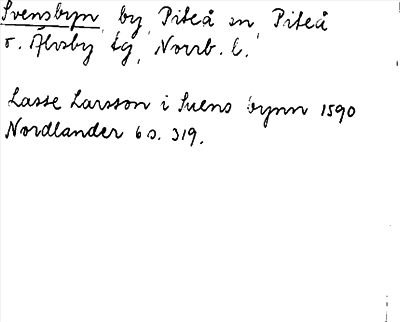 Svensbyn, by, Piteå sn, Piteå
o. Älvsby tg, Norrb. l.
Lasse Larsson i Suens bynn 1590
Nordlander 6 s. 319.